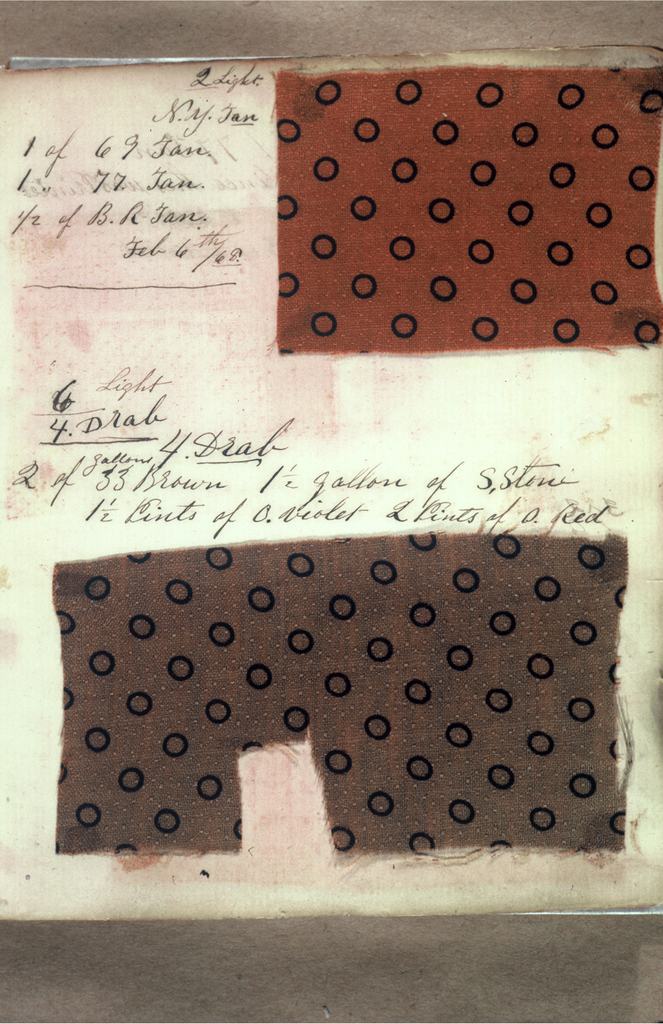 2 Light
N.Y. Tan
1 of 69 Tan.
1 „ 77 Tan.
1/2 of B. R Tan.
Feb 6th/68.
6 Light
4. Drab
4. Drab
2 gallons of 33 Brown 1 1/2 gallon of S, Stone
1 1/2 Pints of O. Violet 2 Pints of O. Red